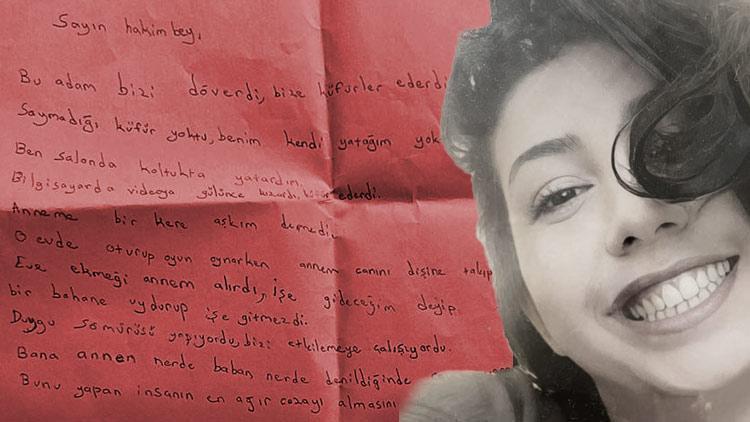 Sayın hakim bey,
Bu adam bizi döverdi, bize küfürler ederdi
Saymadığı küfür yoktu, benim kendi yatağım yok
Ben salonda koltukta yatardım,
Bilgisayarda videoya gülünce kızardı, küfür ederdi.
Anneme bir kere aşkım demedi,
O evde oturup oyun oynarken annem canını dişine takıp
Eve ekmeği annem alırdı, işe gideceğim deyip
bir bahane uydurup işe gitmezdi.
Duygu sömürüsü yapıyordu, bizi etkilemeye çalışıyordu.
Bana annen nerde baban nerde denildiğinde
Bunu yapan insanın en ağır cezayı almasını